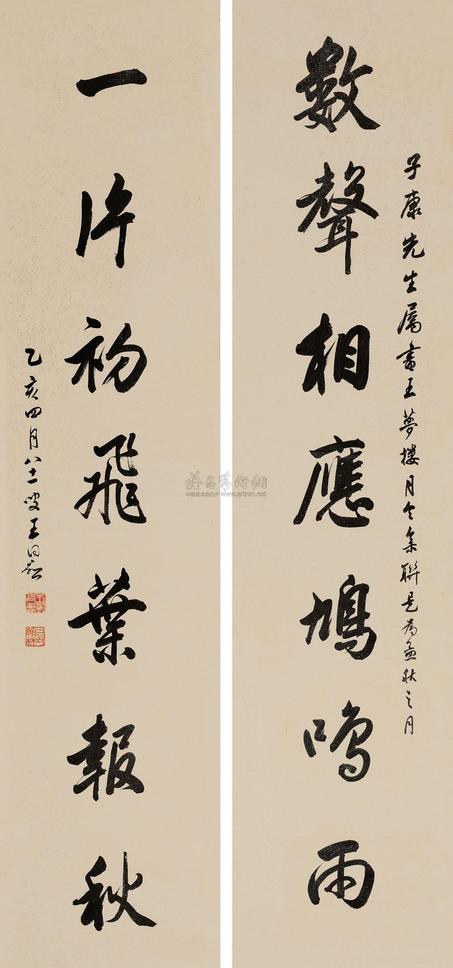 子康先生属書王夢樓月令集聯是為孟秋之月
數聲相應鳩鳴雨
一片初飛葉報秋
乙亥四月八十一叟王同愈